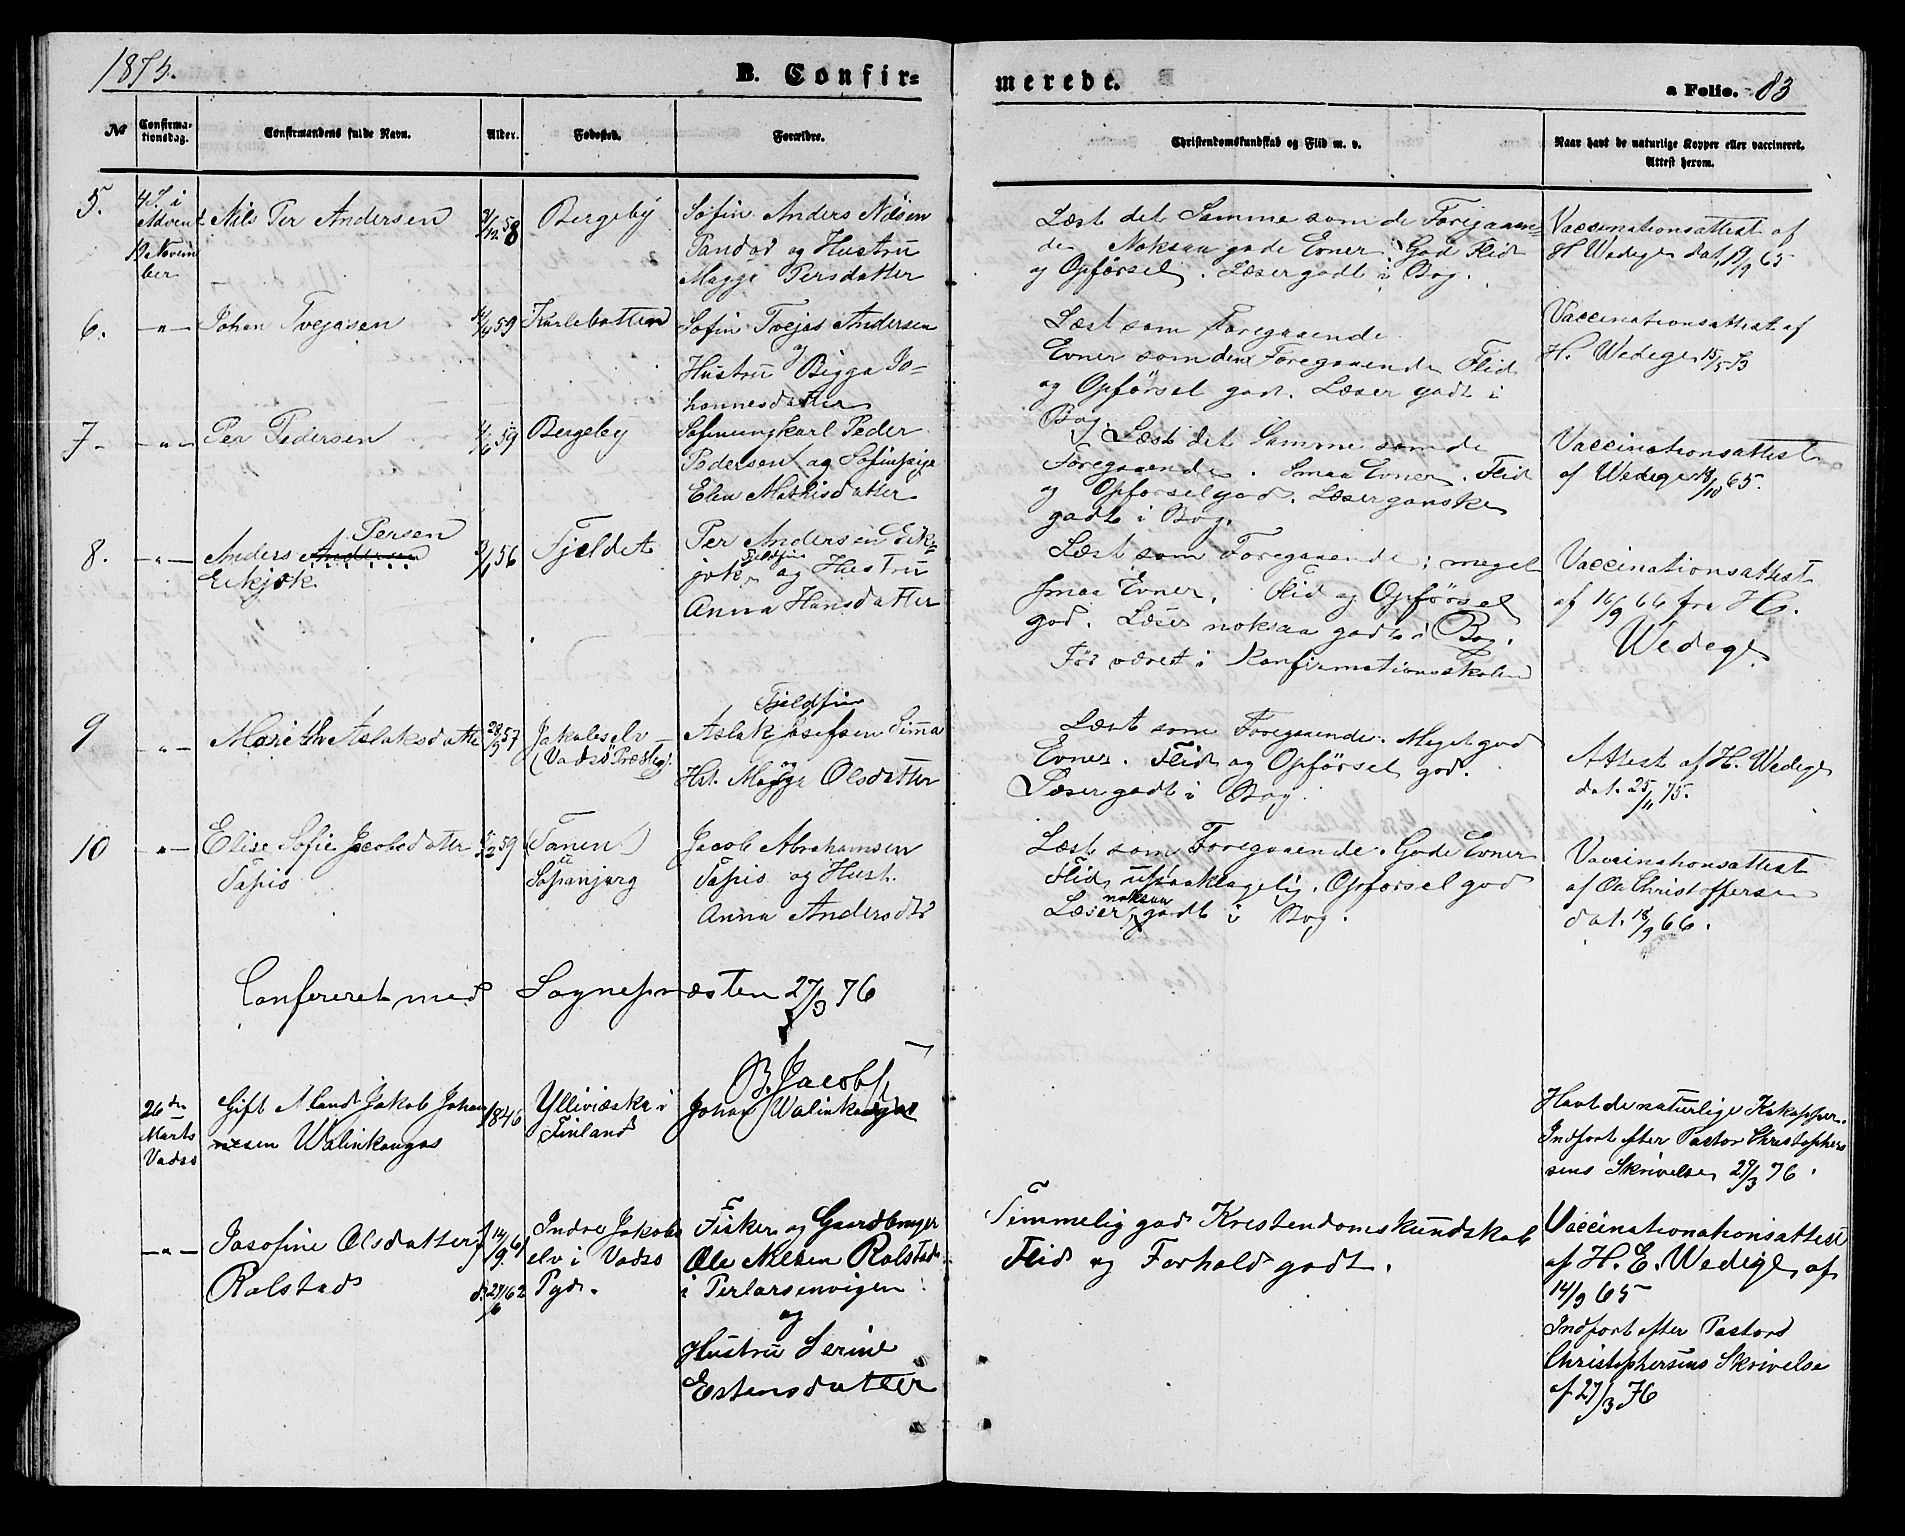 1875.
B. Confir=
merede.
a Folio. 83
No
Confirma-
tionsdag.
Confirmandens fulde Navn.
Alder.
Fødested.
Forældre.
Christendomskundskab og Flid m. v.
Naar havt de naturlige Kopper eller vaccineret.
Attest herom.
5.
4 S. i
Advent
19 Novem
ber
Nils Per Andersen
3/12 58
Bergeby
Søfin Anders Nilsen
og Hustru
Magga Persdatter
Læst det Samme som de Foregaaen=
de. Noksaa gode Evner. God Flid
og Opførsel. Læser godt i Bog.
Vaccinationsattest af
H Wedege dat. 19/9 65
6.
-„-
Johan Tvejasen
59
Karlebotten
Søfin Tvejas Andersen
og
Hustru Bigga Jo-
hannesdatter
Læst som Foregaaende.
Evner som den Foregaaende Flid
og Opførsel god. Læser godt i
Bog.
Vaccinationsattest af
H. Wedege 15/5 73
7.
-„-
Per Pedersen
59
Bergeby
Søfinungkarl Peder
Pedersen og Søfinpige
Elen Mathisdatter
Læst det Samme som de
Foregaaende. Smaa Evner. Flid
og Opførsel god. Læser ganske
godt i Bog.
Vaccinationsattest
af Wedege 18/10 65.
8.
-„-
Persen
Anders Andersen
Eikjok
3/1 56
Fjeldet
Per Andersen Eik=
jok, Fjeldfin og Hustru
Anna Hansdatter
Læst som Foregaaende; meget
smaa Evner. Flid og Opførsel
god. Læser noksaa godt i Bog.
Før været i Konfirmationsskolen
Vaccinationsattest
af 16/9 66 fra H.
Wedege
9
-„-
Marith Aslaksdatter
28/9 57
Jakobselv
(Vadsö Præsteg.
Fjeldfin
Aslak Josefsen Simma
og
Hst. Magga Olsdatter
Læst som Foregaaende. Meget god
Evner. Flid og Opførsel god.
Læser godt i Bog.
Attest af H. Wedege
dat. 25/11 75.
10
-„-
Elise Sofie Jacobsdatter
Tapio
5/2 59
(Tanen)
Jacob Abrahamsen
Tapio og Hust.
Anna Andersdtr
Læst som Foregaaende. Gode Evner
Flid upaaklagelig. Opførsel god
Læser noksaa godt i Bog.
Vaccinationsattest
af Ole Christoffersen
dat. 18/9 66.
Confereret med Sognepræsten 27/3 76
B. Jacobs
26de
Marts
Vadsö
Gift Mand Jakob Johan
nesen Walinkangas
1846
Ylliviæska i
Finland
Johan Walinkangas
Havt de naturlige Kokopper.
Indført efter Pastor Christopher
sens Skrivelse 27/3 76.
-„-
Josofine Olsdatter
Rolstad
f 14/9 61
d. 27/6 62
Indre Jakobs
elv i Vadsö
Pgd.
Fisker og Gaardbruger
Ole Nilsen Rolstad
i Perlarsenvigen
og
Hustru Serine
Estensdatter
Temmelig god Kristendomskundskab
Flid og Forhold godt.
Vaccinationationsattest
af H. E. Wedege, af
14/9 65
Indført efter Pastor
Christophersens Skrivelse
af 27/3 76